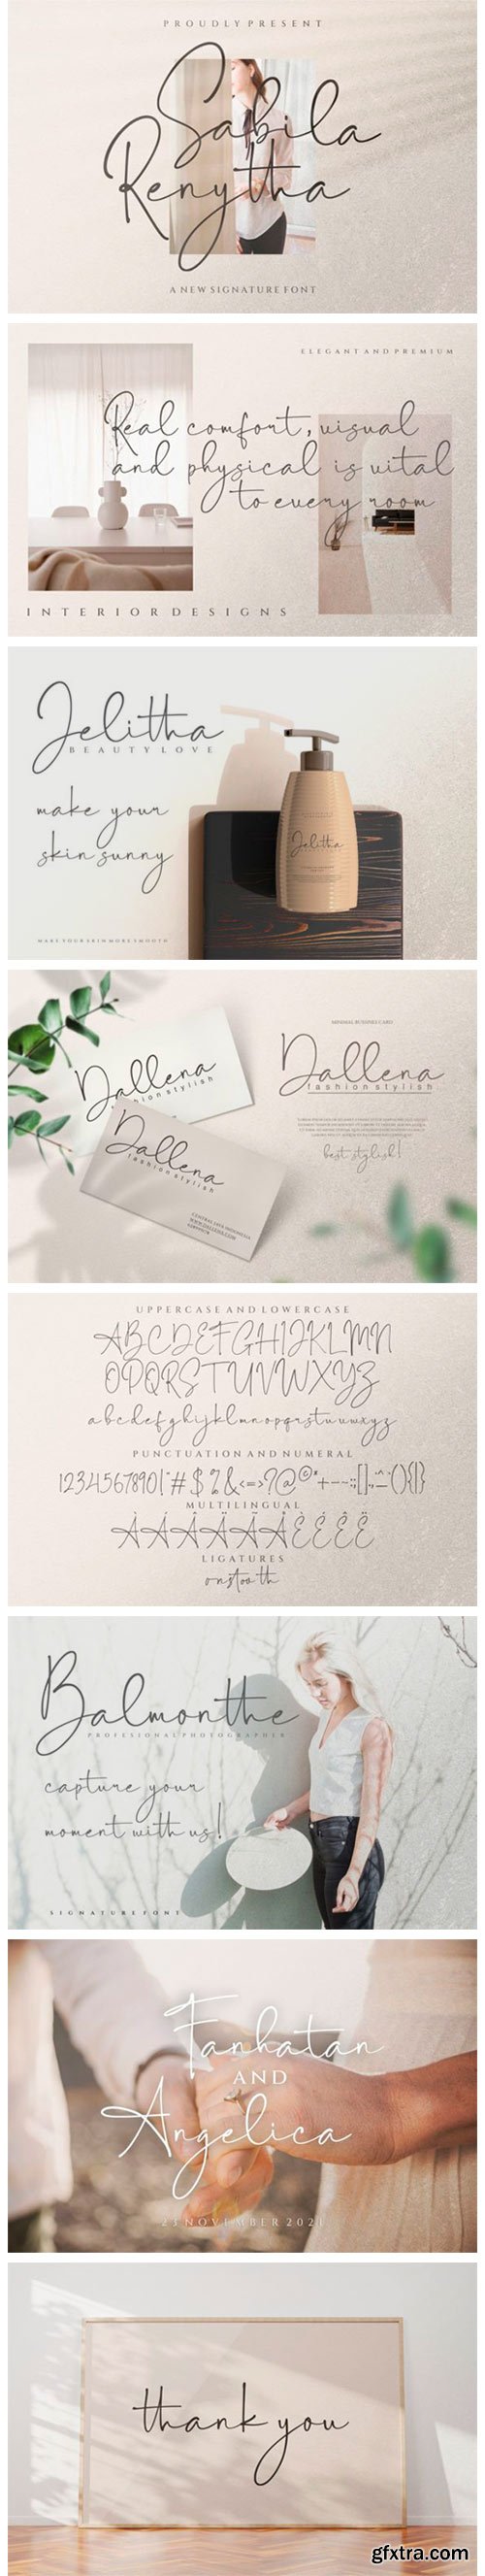 PROUDLY PRESENT
Sabila
Renytha
A NEW SIGNATURE FONT
ELEGANT AND PREMIUM
Real comfort, visual
and physical is vital
to every room
INTERIOR DESIGNS
Jelitha
BEAUTY LOVE
make your
skin sunny
Jelitha
MAKE YOUR SKIN MORE SMOOTH
MINIMAL BUSSINES CARD
Dallena
fashion stylish
Dallena
fashion stylish
Dallena
fashion stylish
best stylish!
CENTRAL JAVA INDONESIA
WWW.DALLENA.COM
UPPERCASE AND LOWERCASE
ABCDEFGHIJKLMN
OPQRSTUVWXYZ
abcdefghijklmnopqrstuvwxyz
PUNCTUATION AND NUMERAL
MULTILINGUAL
ÀÁÂÄÃÅÈÉÊË
LIGATURES
Balmonthe
PROFESIONAL PHOTOGRAPHER
capture your
moment with us!
SIGNATURE FONT
Fanhatan
AND
Angelica
23 NOVEMBER 2021
thank you
gfxtra.com